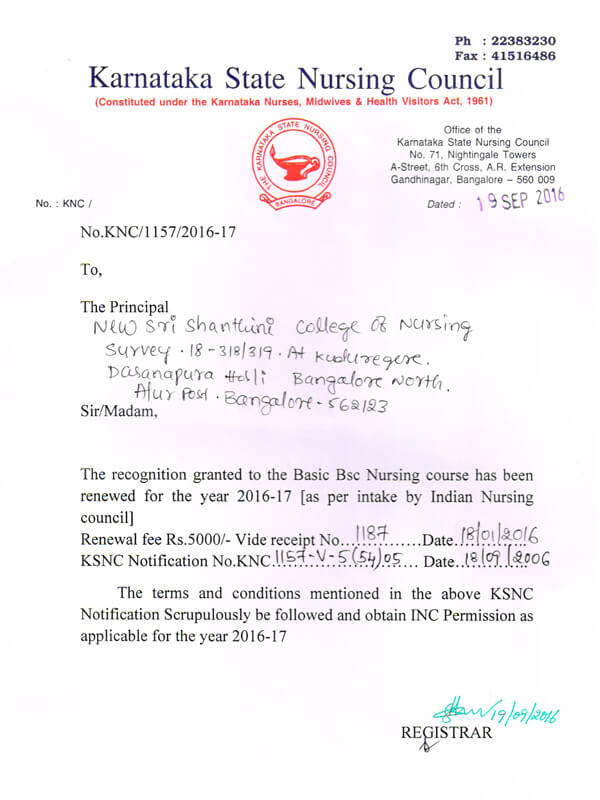 Ph : 22383230
Fax : 41516486
Karnataka State Nursing Council
(Constituted under the Karnataka Nurses, Midwives & Health Visitors Act, 1961)
THE KARNATAKA STATE NURSING COUNCIL
BANGALORE
Office of the
Karnataka State Nursing Council
No. 71, Nightingale Towers
A-Street, 6th Cross, A.R. Extension
Gandhinagar, Bangalore – 560 009
No. : KNC /
Dated : 19 SEP 2016
No.KNC/1157/2016-17
To,
The Principal
New Sri Shanthini College of Nursing
Survey · 18-318/319 · At Kuduregere.
Dasanapura Hobli Bangalore North.
Alur Post · Bangalore - 562123
Sir/Madam,
The recognition granted to the Basic Bsc Nursing course has been
renewed for the year 2016-17 [as per intake by Indian Nursing
council]
Renewal fee Rs.5000/- Vide receipt No...1187...Date..18/01/2016
KSNC Notification No.KNC.1157-V-5(54)05...Date..18/09/2006
The terms and conditions mentioned in the above KSNC
Notification Scrupulously be followed and obtain INC Permission as
applicable for the year 2016-17
19/09/2016
REGISTRAR